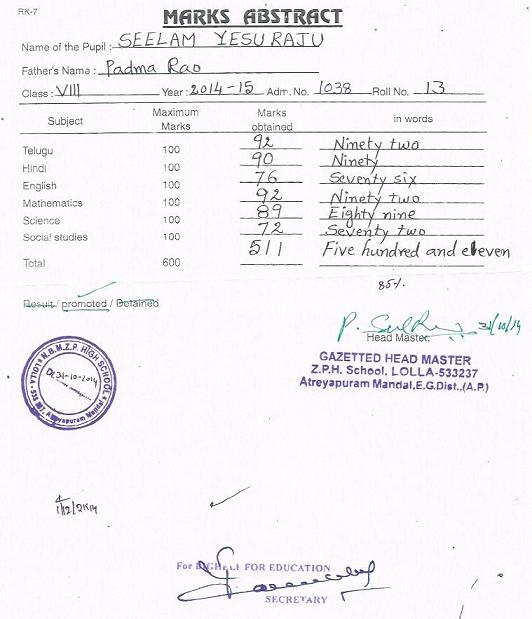 RK-7
MARKS ABSTRACT
Name of the Pupil : SEELAM YESURAJU
Father's Name : Padma Rao
Class : VIII Year : 2014-15 Adm. No. 1038 Roll No. 13
Subject Maximum Marks Marks obtained in words
Telugu 100 92 Ninety two
Hindi 100 90 Ninety
English 100 76 Seventy six
Mathematics 100 92 Ninety two
Science 100 89 Eighty nine
Social studies 100 72 Seventy two
Total 600 511 Five hundred and eleven
85%
Result / promoted / Detained
31/10/14
Head Master
GAZETTED HEAD MASTER
Z.P.H. School, LOLLA-533237
Atreyapuram Mandal, E.G.Dist., (A.P.)
N.B.M.Z.P. HIGH SCHOOL
Dt 31-10-2014
LOLLA
Atreyapuram Mandal
For FOR EDUCATION
SECRETARY